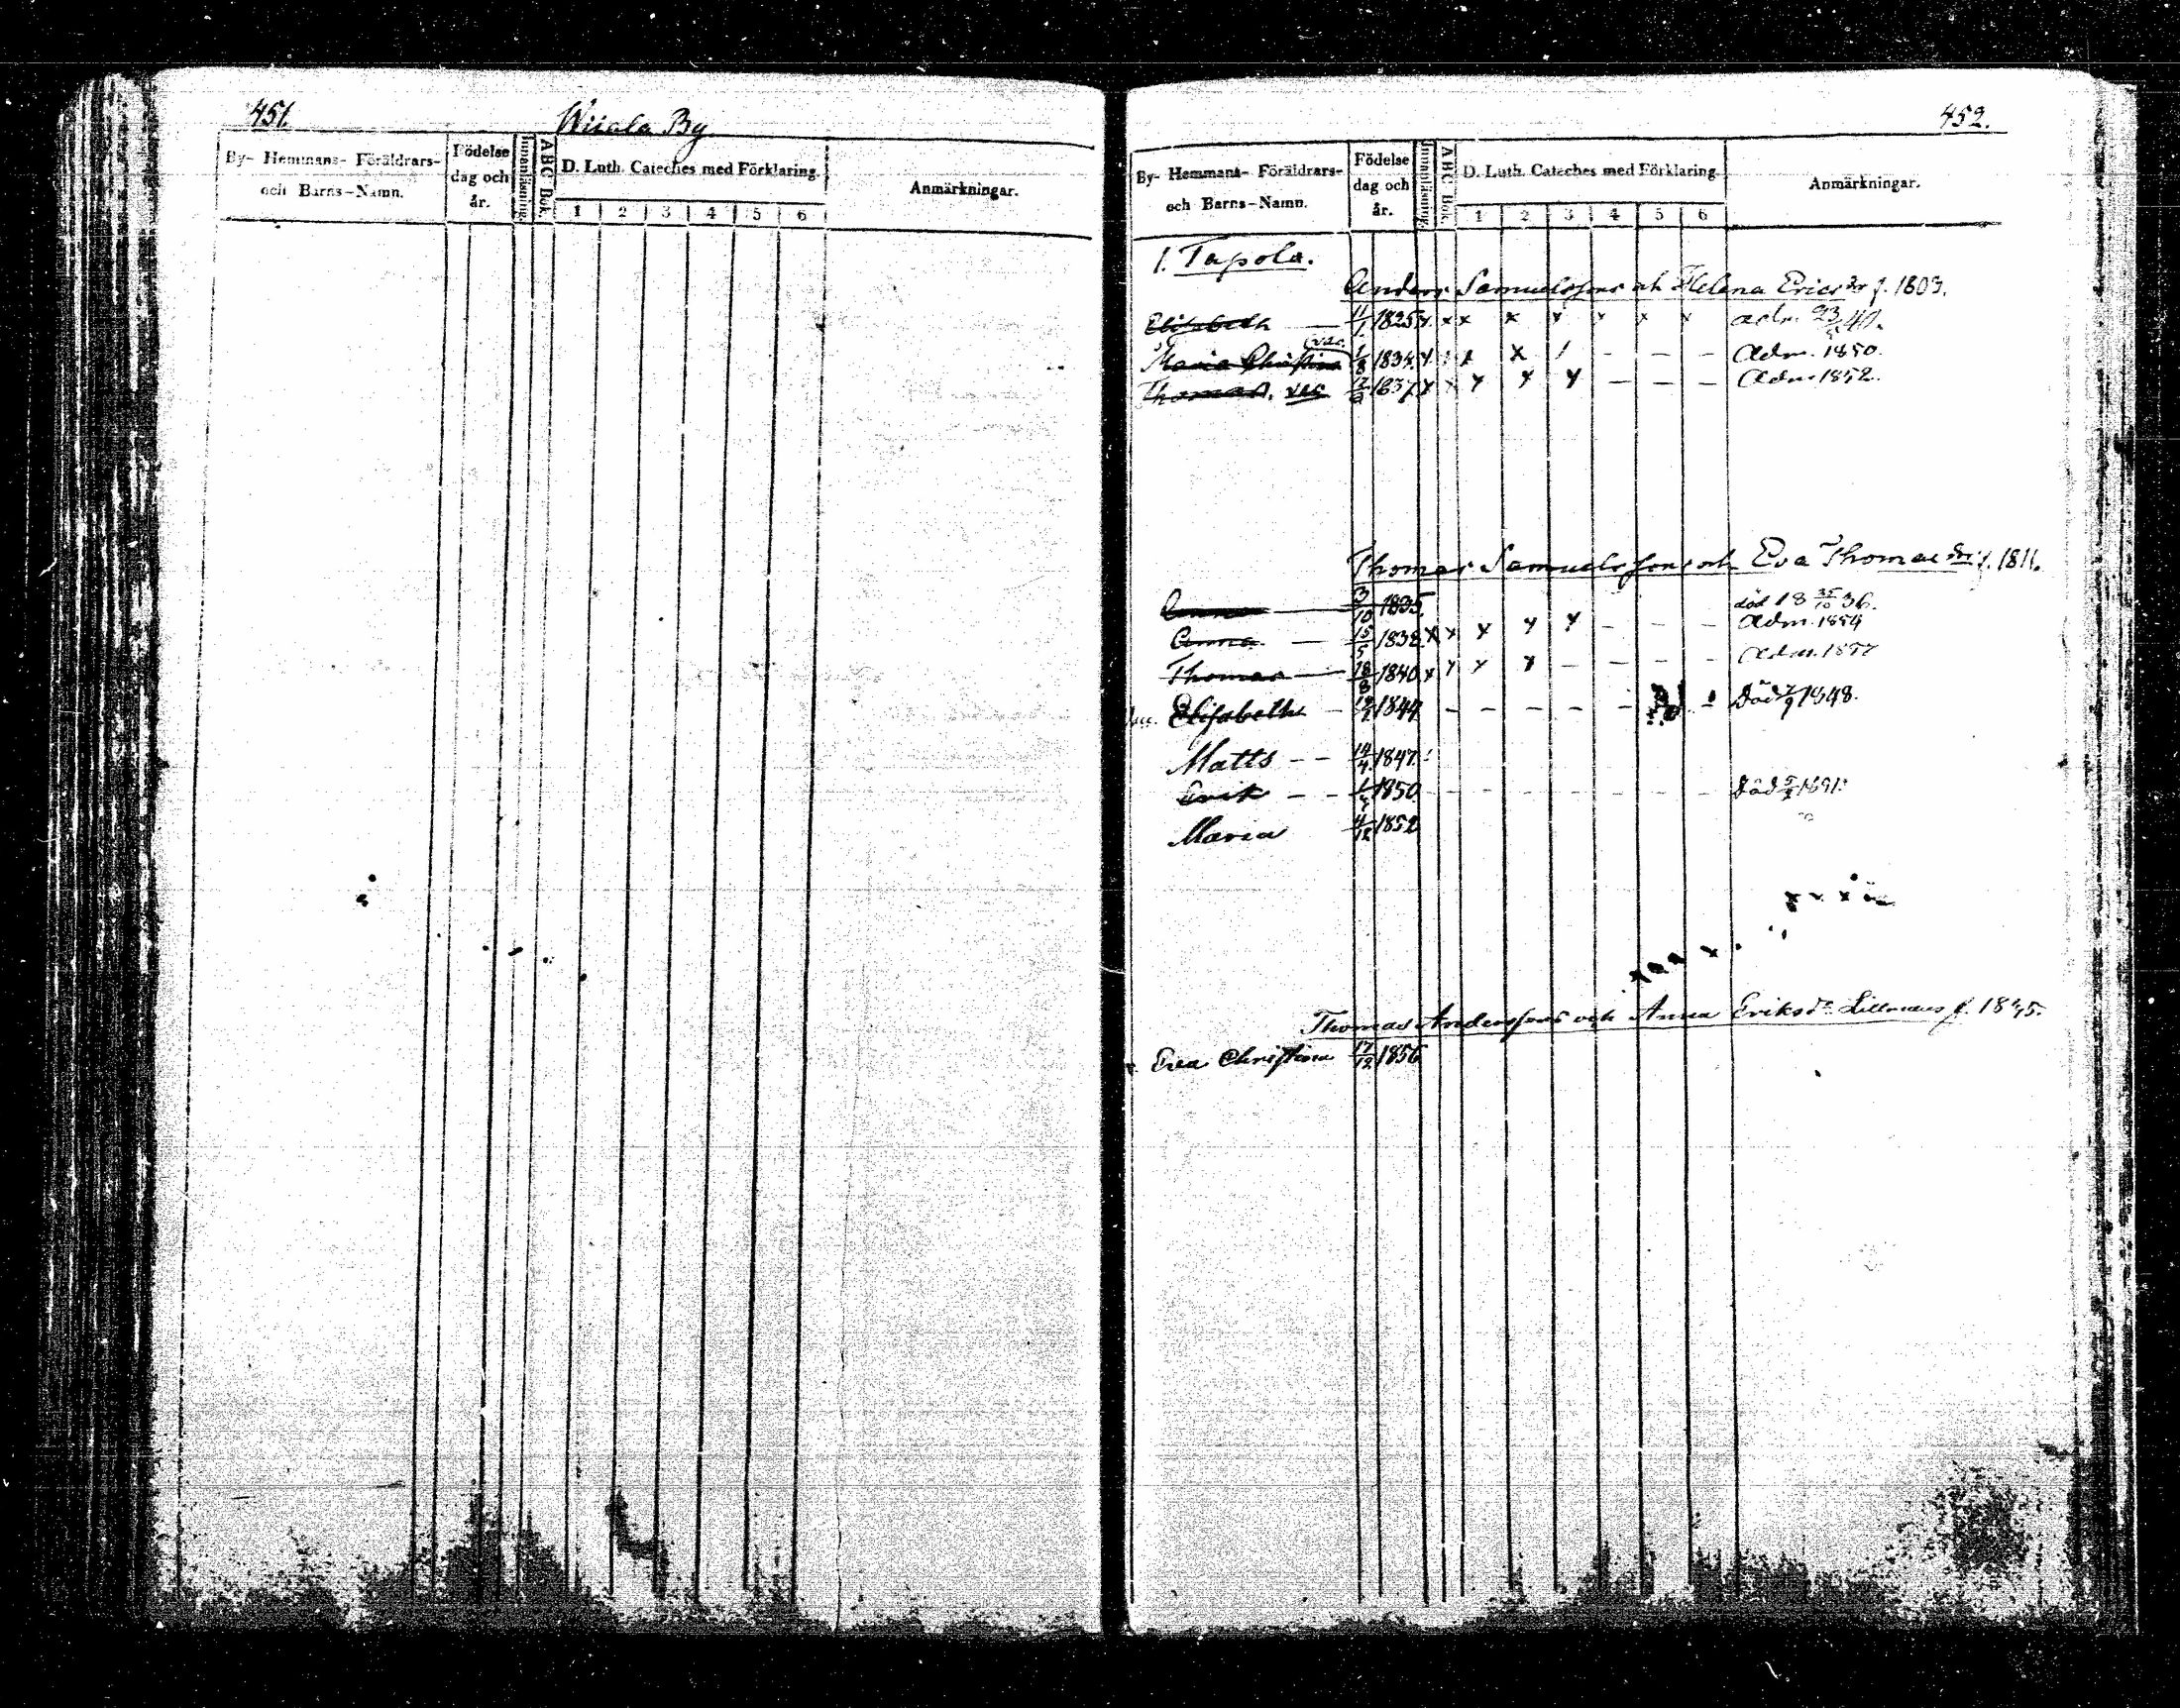 451.
Wisala By
By- Hemmans- Föräldrars- och Barns-Namn.
Födelse dag och år.
Innanläsning.
ABC Bok.
D. Luth. Cateches med Förklaring.
1 2 3 4 5 6
Anmärkningar.
452.
By- Hemmans- Föräldrars- och Barns-Namn.
Födelse dag och år.
Innanläsning.
ABC Bok.
D. Luth. Cateches med Förklaring.
1 2 3 4 5 6
Anmärkningar.
1. Tapola.
Anders Samuelssons och Helena Ericsdr f. 1803.
Elisabeth — 11/1 1825 x x x x x x x x adm.
Maria Christina vac. 1/8 1834 x x x / – – – Adm. 1850.
Thomas. vac 1837 x x x x x – – – Adm 1852.
Thomas Samuelssons och Eva Thomasdr f. 1811.
Anna — 3/10 1835 död 18 /10 36.
Anna — 15/5 1838 x x x x x – – – Adm. 1854
Thomas — 18/8 1840 x x x x – – – – Adm. 1857
Elisabeth – 1844 – – – – – – Död 1848.
Matts – – 14/4 1847
Erik – – 1850 – – – – – – – Död
Maria 4/12 1852
Thomas Anderssons och Anna Eriksdr Lillmaus f. 1835.
Eva Christina 17/12 1856